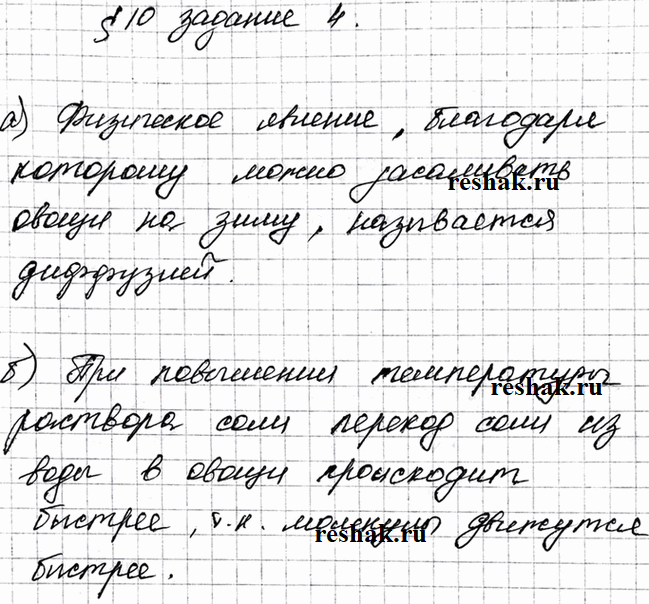 § 10 задание 4.
а) Физическое явление, благодаря
которому можно засаливать
reshak.ru
овощи на зиму, называется
диффузией.
б) При повышении температуры
reshak.ru
раствора соли переход соли из
воды в овощи происходит
быстрее, т.к. молекулы движутся
reshak.ru
быстрее.